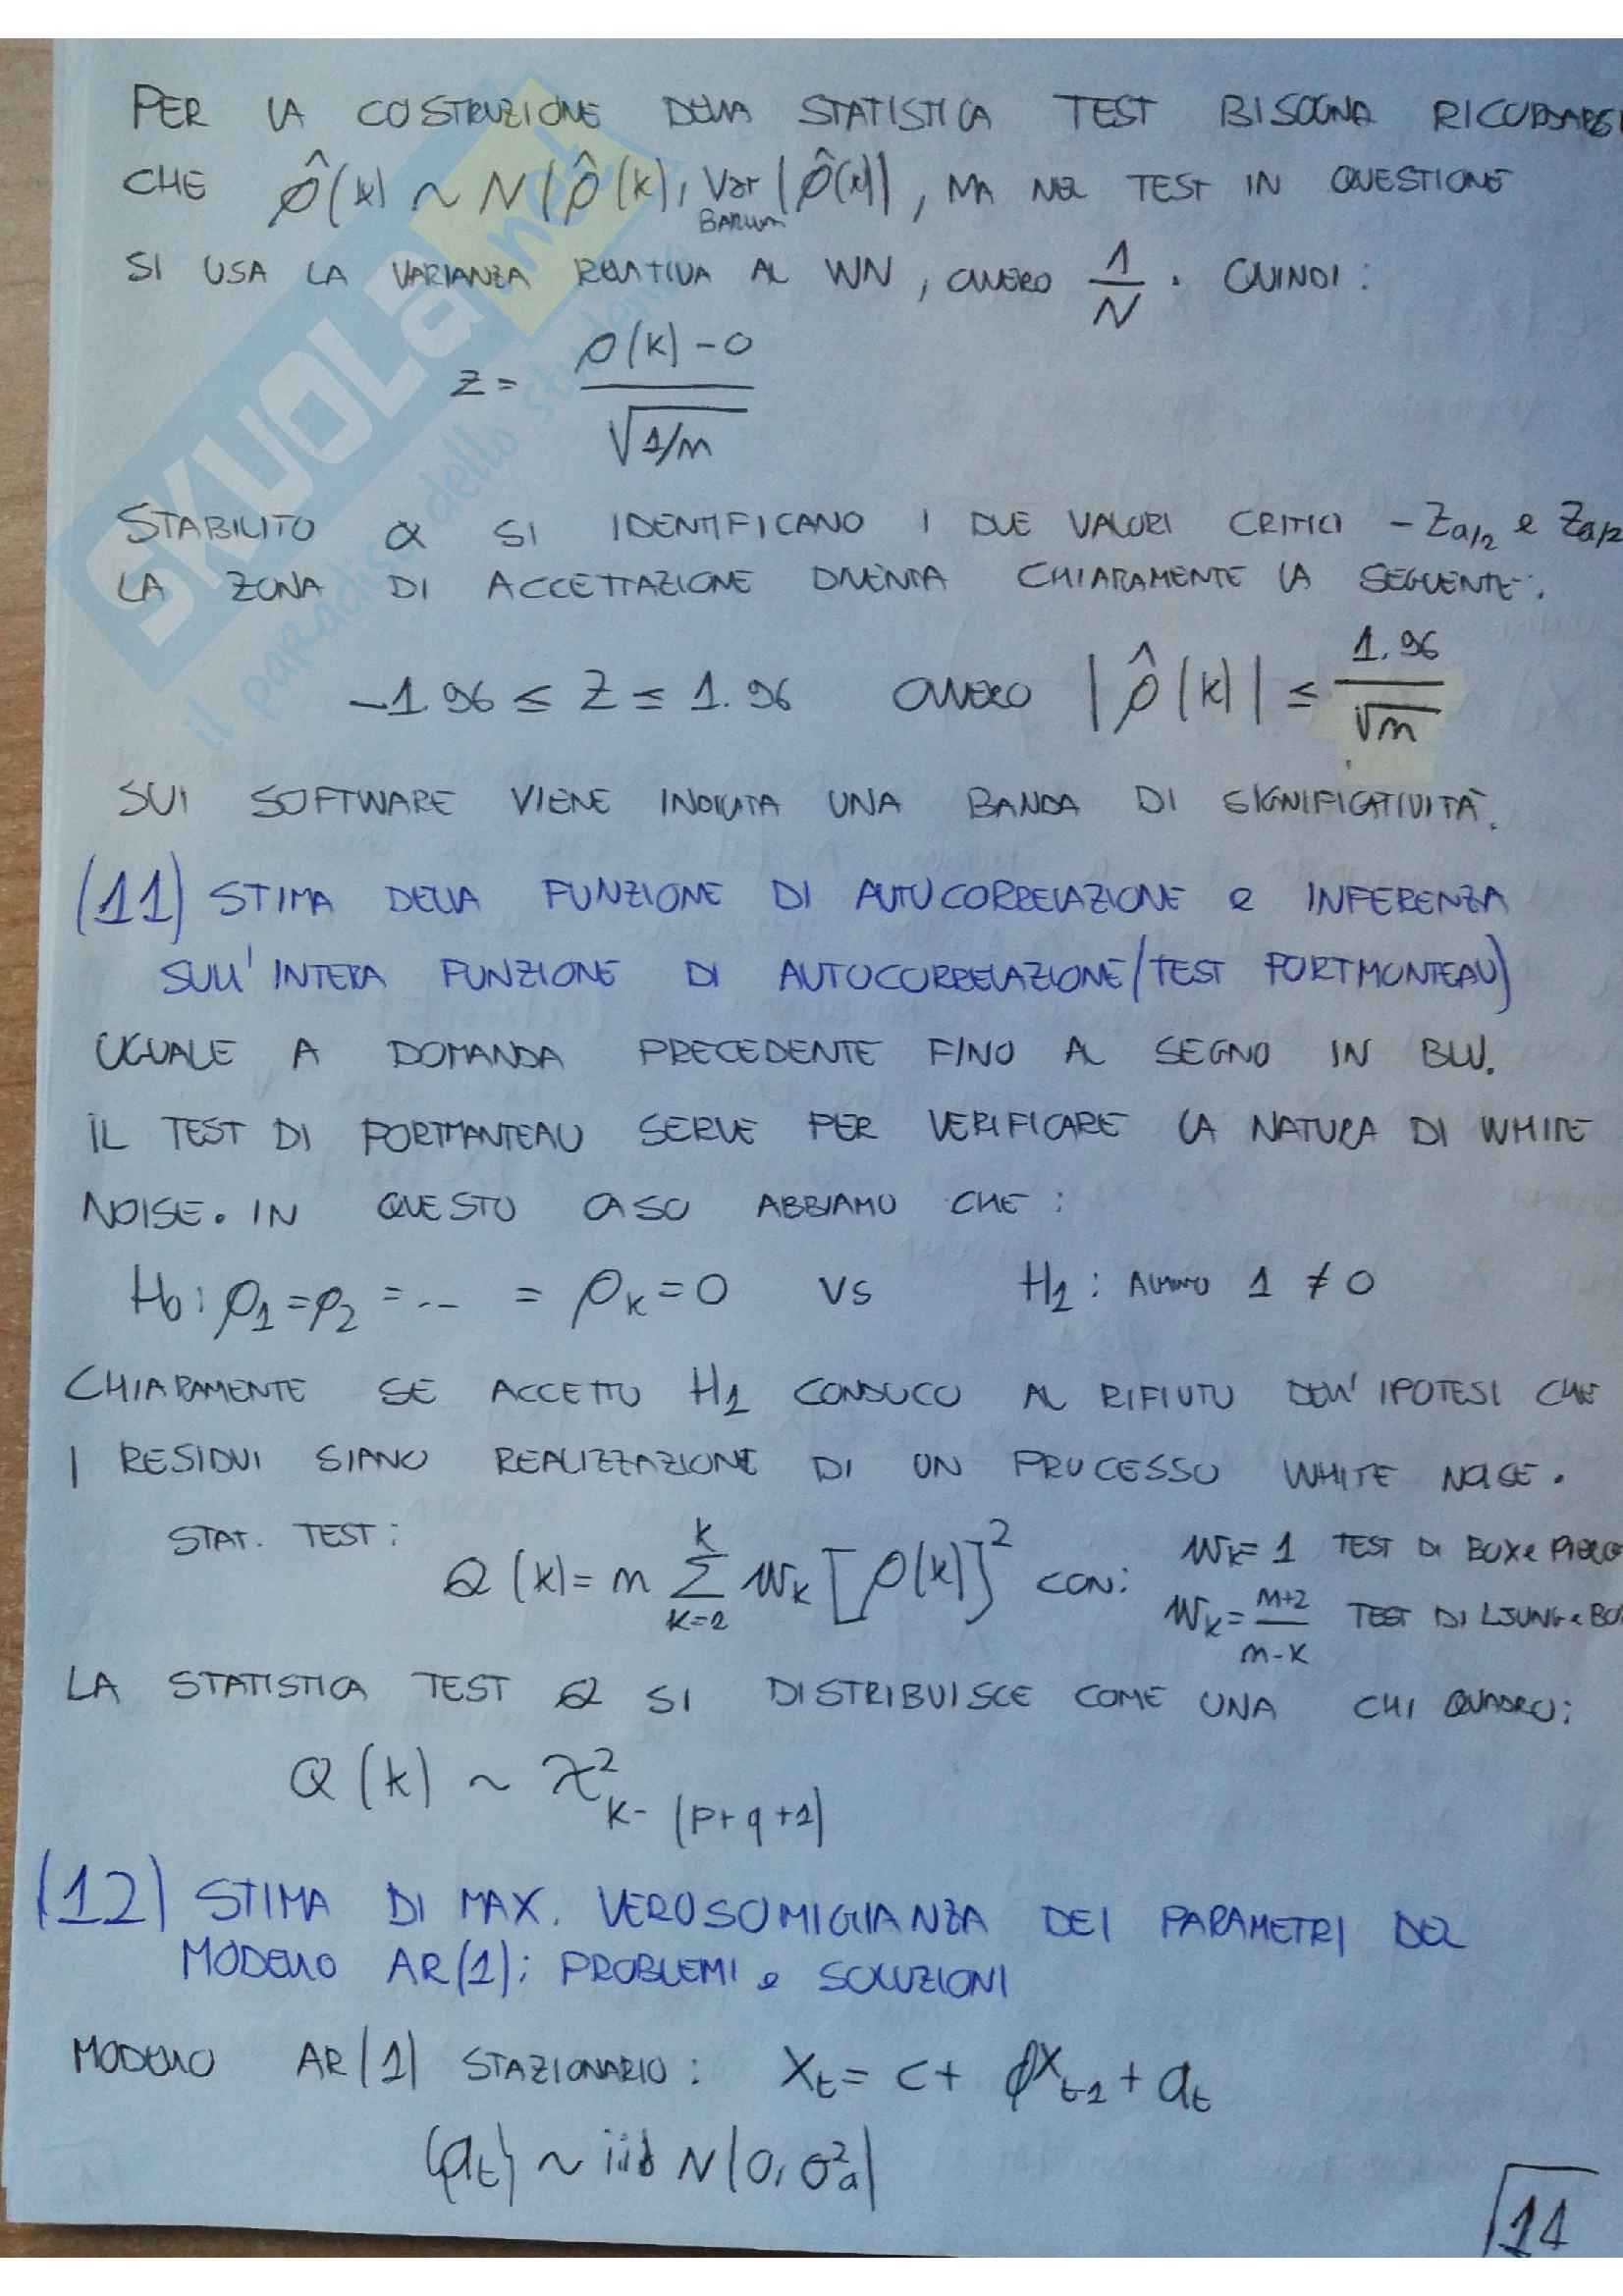 PER LA COSTRUZIONE DELLA STATISTICA TEST BISOGNA RICORDARSI
CHE ρ̂(k) ~ N(ρ̂(k), Var (ρ̂(k)), MA NEL TEST IN QUESTIONE
SI USA LA VARIANZA RELATIVA AL WN, OVVERO 1/N. QUINDI:
z = (ρ(k) - 0) / √(1/n)
STABILITO α SI IDENTIFICANO I DUE VALORI CRITICI -Zα/2 e Zα/2
LA ZONA DI ACCETTAZIONE DIVENTA CHIARAMENTE LA SEGUENTE:
-1.96 ≤ Z ≤ 1.96 OVVERO |ρ̂(k)| ≤ 1.96/√n
SUI SOFTWARE VIENE INDICATA UNA BANDA DI SIGNIFICATIVITÀ.
(11) STIMA DELLA FUNZIONE DI AUTOCORRELAZIONE e INFERENZA
SULL'INTERA FUNZIONE DI AUTOCORRELAZIONE (TEST PORTMONTEAU)
UGUALE A DOMANDA PRECEDENTE FINO AL SEGNO IN BLU.
IL TEST DI PORTMANTEAU SERVE PER VERIFICARE LA NATURA DI WHITE
NOISE. IN QUESTO CASO ABBIAMO CHE:
H0: ρ1 = ρ2 = ... = ρk = 0 VS H1: ALMENO 1 ≠ 0
CHIARAMENTE SE ACCETTO H1 CONDUCO AL RIFIUTO DELL'IPOTESI CHE
I RESIDUI SIANO REALIZZAZIONE DI UN PROCESSO WHITE NOISE.
STAT. TEST: Q(k) = n Σ_{k=1}^{k} wk [ρ(k)]² CON: wk = 1 TEST DI BOX e PIERCE
wk = (n+2)/(n-k) TEST DI LJUNG e BOX
LA STATISTICA TEST Q SI DISTRIBUISCE COME UNA CHI QUADRO:
Q(k) ~ χ²k-(p+q+1)
(12) STIMA DI MAX. VEROSOMIGLIANZA DEI PARAMETRI DEL
MODELLO AR(1); PROBLEMI e SOLUZIONI
MODELLO AR(1) STAZIONARIO: Xt = c + ϕXt-1 + at
{at} ~ iid N(0, σ²a)
14
SKUOLA.net
il paradiso dello studente